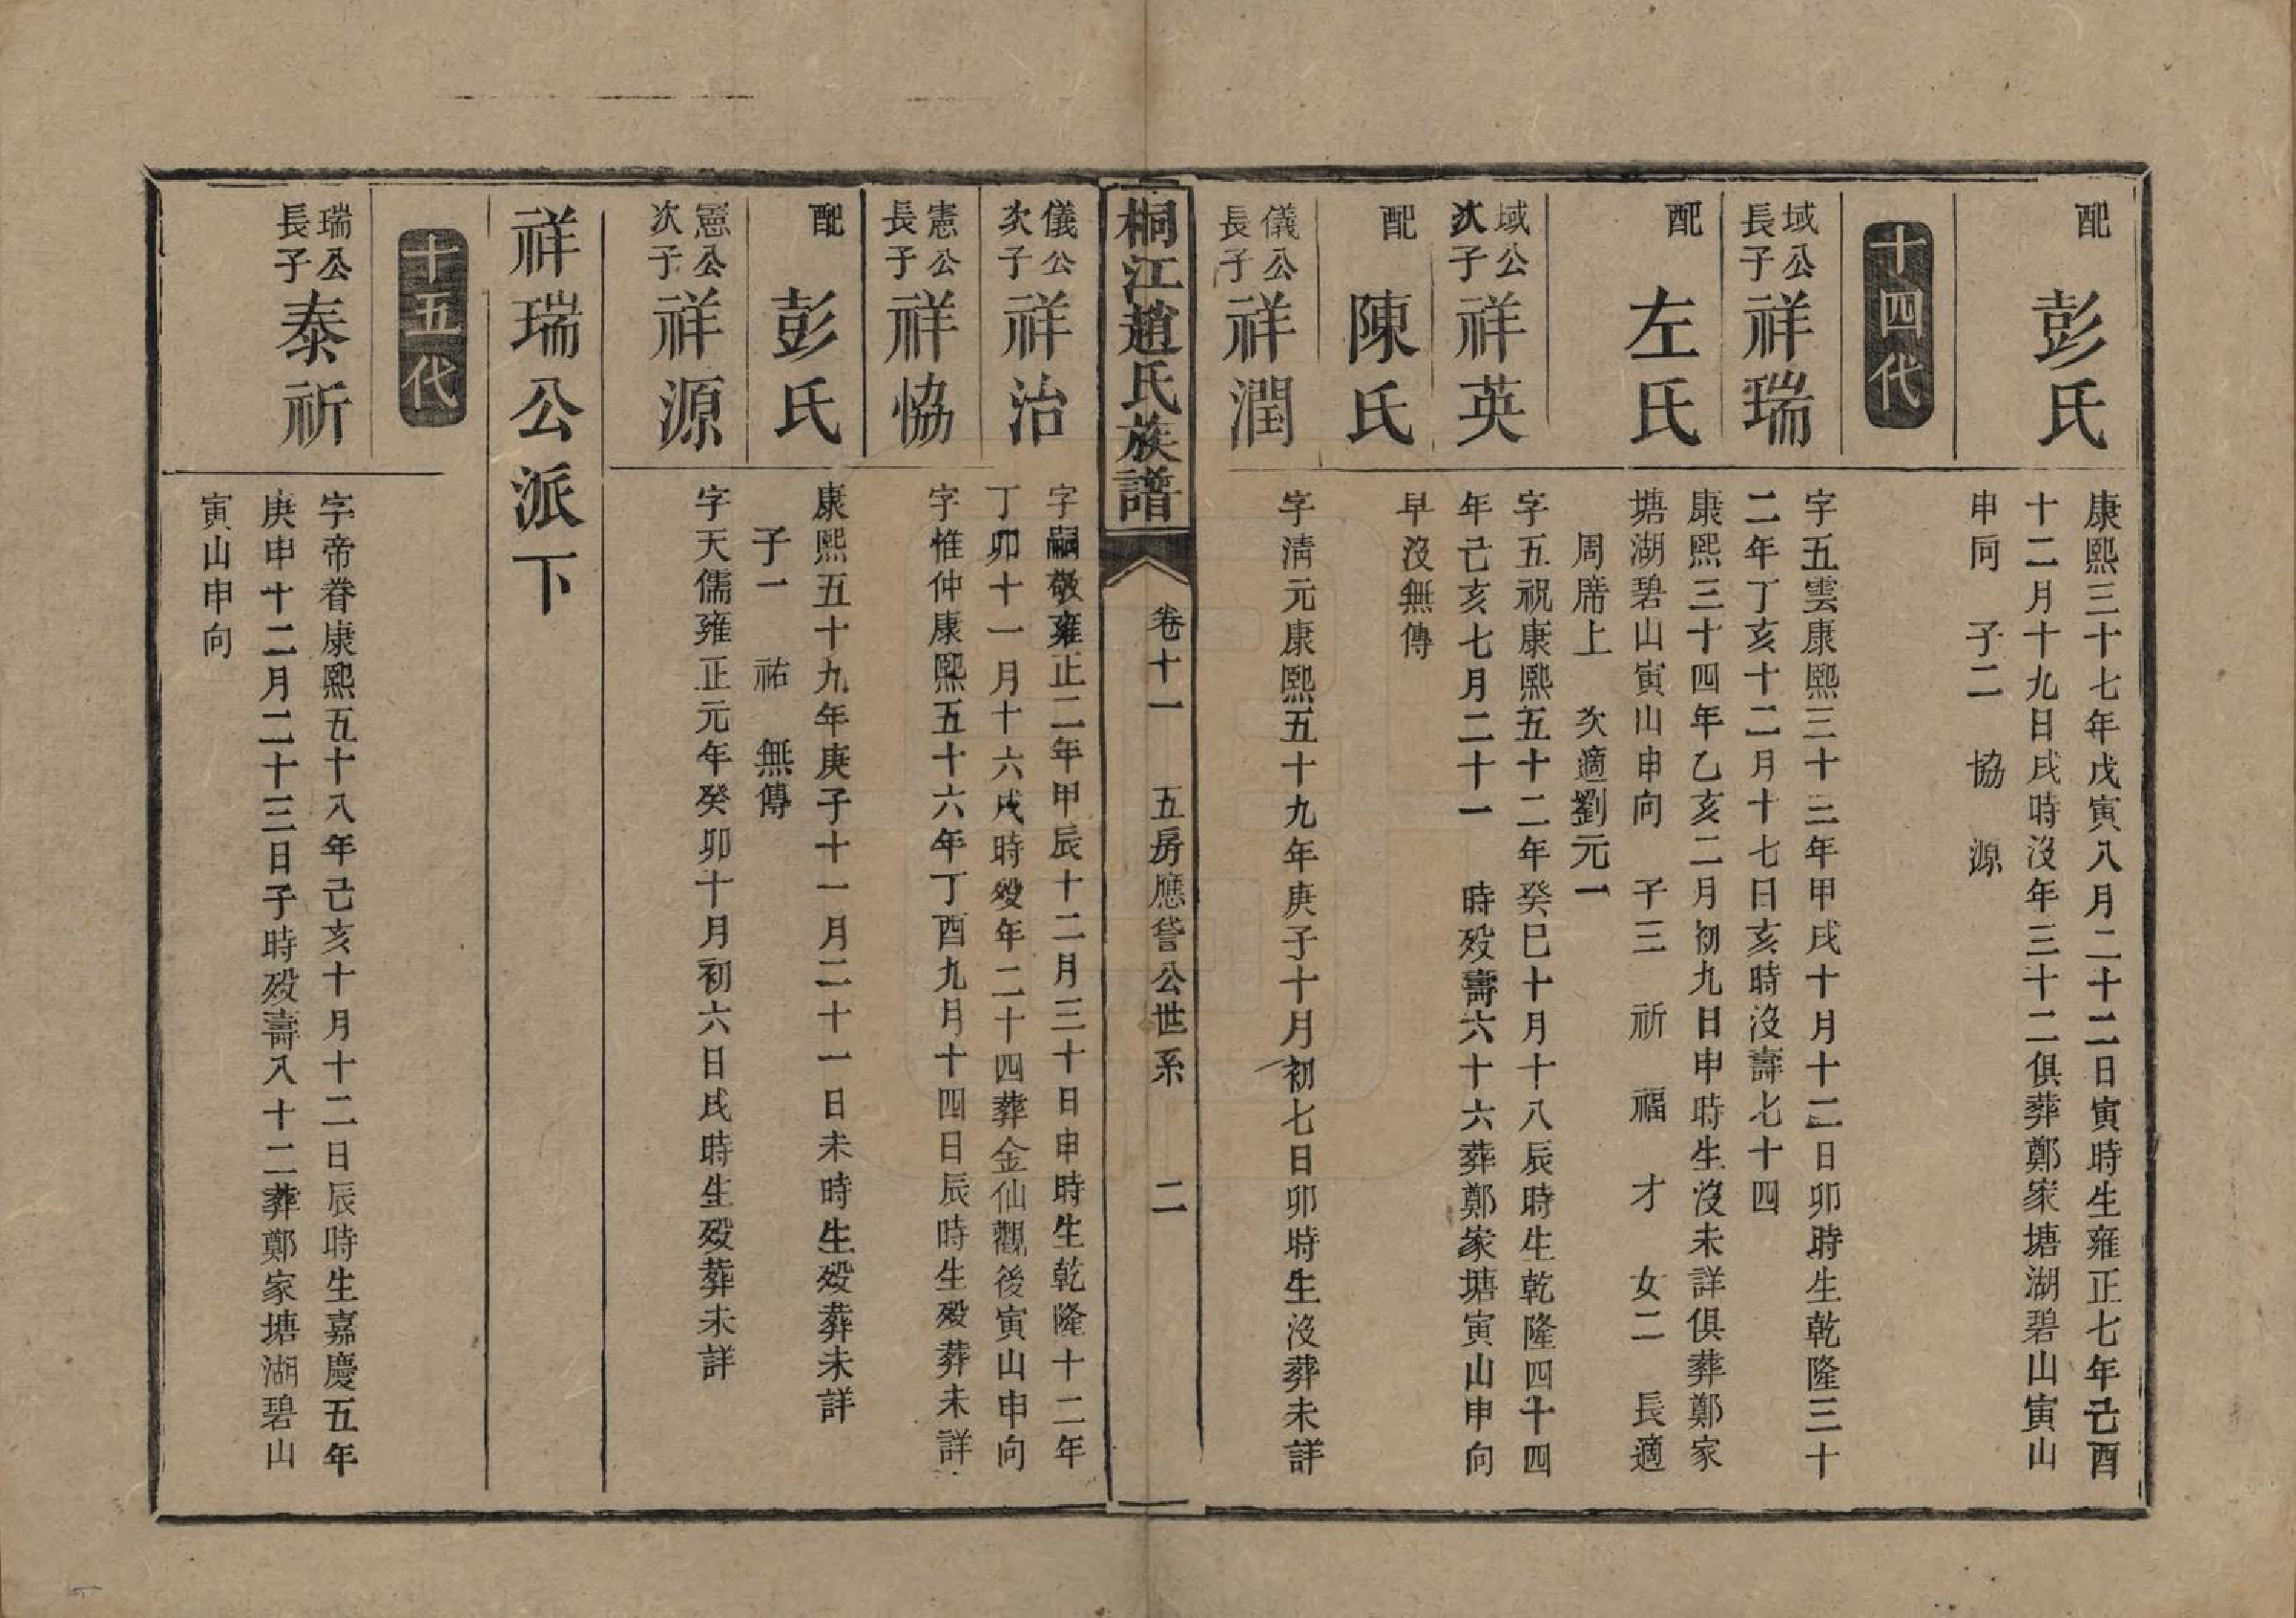 配 彭氏
康熙三十七年戊寅八月二十二日寅時生雍正七年己酉
十二月十九日戌時沒年三十二俱葬鄭家塘湖碧山寅山
申向 子二 協 源
十四代
域公長子 祥瑞
字五雲康熙三十三年甲戌十月十二日卯時生乾隆三十
二年丁亥十二月十七日亥時沒壽七十四
配 左氏
康熙三十四年乙亥二月初九日申時生沒未詳俱葬鄭家
塘湖碧山寅山申向 子三 祈 福 才 女二 長適
周席上 次適劉元一
域公次子 祥英
字五祝康熙五十二年癸巳十月十八辰時生乾隆四十四
年己亥七月二十一 時歿壽六十六葬鄭家塘寅山申向
配 陳氏
早沒無傳
儀公長子 祥潤
字淸元康熙五十九年庚子十月初七日卯時生沒葬未詳
桐江趙氏族譜 卷十一 五房應訾公世系 二
儀公次子 祥治
字嗣敬雍正二年甲辰十二月三十日申時生乾隆十二年
丁卯十一月十六戌時歿年二十四葬金仙觀後寅山申向
憲公長子 祥恊
字惟仲康熙五十六年丁酉九月十四日辰時生歿葬未詳
配 彭氏
康熙五十九年庚子十一月二十一日未時生歿葬未詳
子一 祐 無傳
憲公次子 祥源
字天儒雍正元年癸卯十月初六日戌時生歿葬未詳
祥瑞公派下
十五代
瑞公長子 泰祈
字帝眷康熙五十八年己亥十月十二日辰時生嘉慶五年
庚申十二月二十三日子時歿壽八十二葬鄭家塘湖碧山
寅山申向